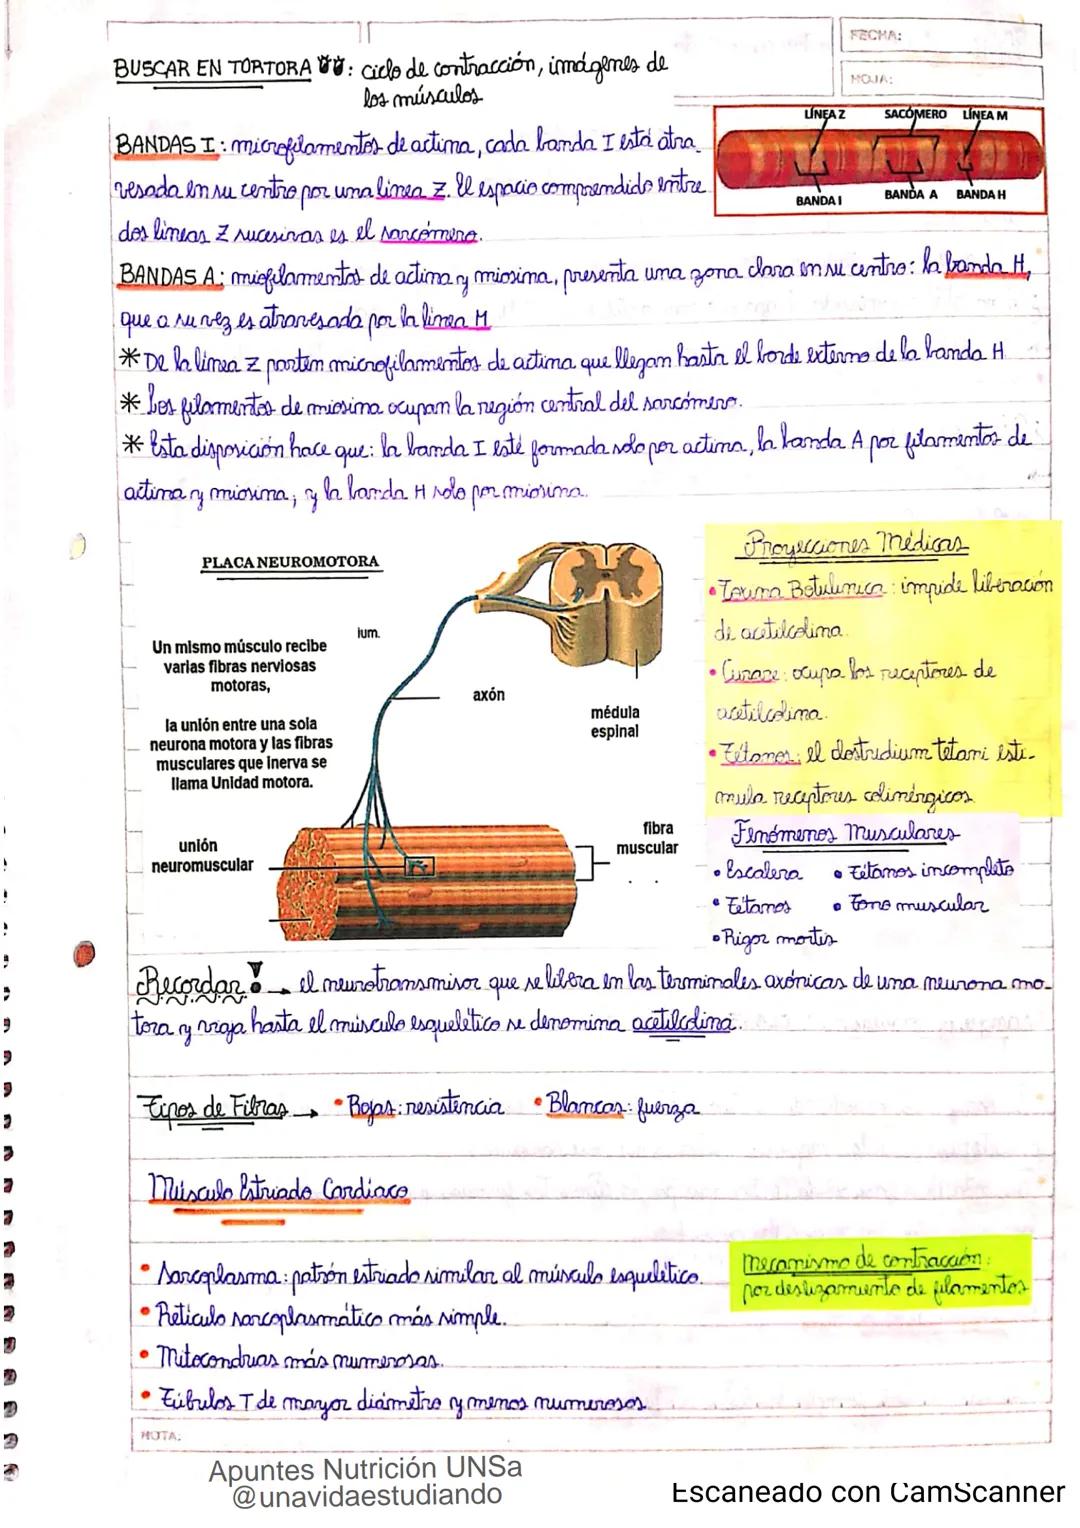 FECHA:
HOJA:
BUSCAR EN TORTORA : ciclo de contracción, imágenes de
los músculos
BANDAS I: microfilamentos de actina, cada banda I está atra_
vesada en su centro por una linea Z. El espacio comprendido entre
dos lineas Z sucesivas es el sarcómero.
LÍNEA Z SACÓMERO LÍNEA M
BANDA I BANDA A BANDA H
BANDAS A: miofilamentos de actina y miosina, presenta una zona clara en su centro: la banda H,
que a su vez es atravesada por la linea M
* De la linea Z parten microfilamentos de actina que llegan hasta el borde externo de la banda H
* Los filamentos de miosina ocupan la región central del sarcómero.
* Esta disposición hace que: la banda I esté formada solo por actina, la banda A por filamentos de
actina y miosina; y la banda H solo por miosina.
PLACA NEUROMOTORA
Un mismo músculo recibe
varias fibras nerviosas
motoras,
ium.
la unión entre una sola
neurona motora y las fibras
musculares que inerva se
llama Unidad motora.
axón
médula
espinal
unión
neuromuscular
fibra
muscular
Proyecciones Médicas
• Toxina Botulinica: impide liberación
de acetilcolina.
• Curare: ocupa los receptores de
acetilcolina.
• Tétanos: el clostridium tetani esti-
mula receptores colinérgicos
Fenómenos Musculares
• Escalera • Tétanos incompleto
• Tétanos • Tono muscular
• Rigor mortis
Recordar! → el neurotransmisor que se libera en las terminales axónicas de una neurona mo_
tora y viaja hasta el músculo esquelético se denomina acetilcolina.
Tipos de Fibras → • Rojas: resistencia • Blancas: fuerza
Músculo Estriado Cardíaco
• Sarcoplasma: patrón estriado similar al músculo esquelético.
• Retículo sarcoplasmático más simple.
• Mitocondrias más numerosas.
• Túbulos T de mayor diámetro y menos numerosos
mecanismo de contracción:
por deslizamiento de filamentos
NOTA:
Apuntes Nutrición UNSa
@unavidaestudiando
Escaneado con CamScanner